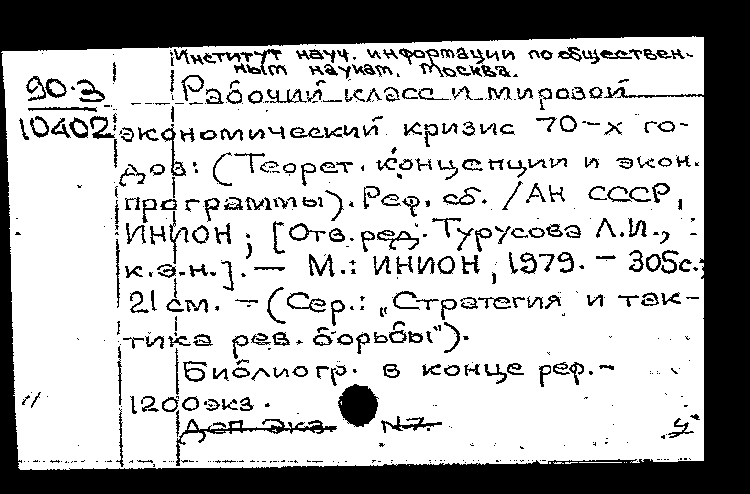 Институт науч. информации по обществен-
ным наукам. Москва.
90-3
10402
Рабочий класс и мировой
экономический кризис 70-х го-
дов: (Теорет. концепции и экон.
программы). Реф. сб. / АН СССР,
ИНИОН; [Отв. ред. Турусова Л.И.,
к.э.н.]. — М.: ИНИОН, 1979. — 305с.;
21 см. — (Сер.: „Стратегия и так-
тика рев. борьбы").
Библиогр. в конце реф. —
1200экз.
Деп. экз. N7.